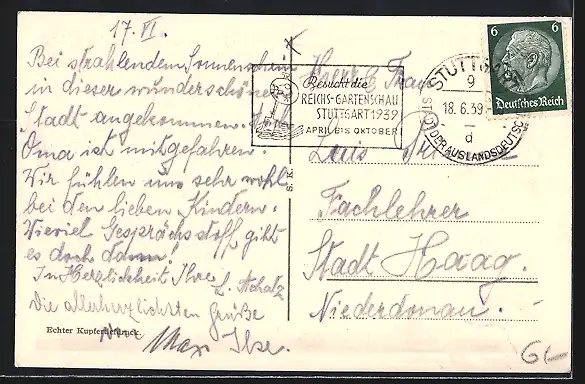 17. VI.
Bei strahlendem Sonnenschein
in dieser wunderschönen
Stadt angekommen.
Oma ist mitgefahren.
Wir fühlen uns sehr wohl
bei den lieben Kindern.
Wieviel Gesprächsstoff gibt
es doch dann!
In Herzlichkeit Ihre
Die allerherzlichsten Grüße
Max Ilse.
Echter Kupfertiefdruck.
S. K.
Besucht die
REICHS-GARTENSCHAU
STUTTGART 1939
APRIL BIS OKTOBER
STUTTGART
9
18.6.39
d
STADT DER AUSLANDSDEUTSCHEN
6 6
Deutsches Reich
Herr & Frau
Louis
Fachlehrer
Stadt Haag.
Niederdonau.